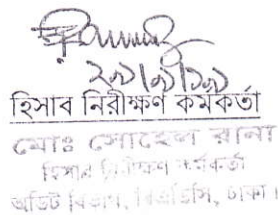 ২৯/০৯/১৯
হিসাব নিরীক্ষণ কর্মকর্তা
মোঃ সোহেল রানা
হিসাব নিরীক্ষণ কর্মকর্তা
অডিট বিভাগ, বিএডিসি, ঢাকা।